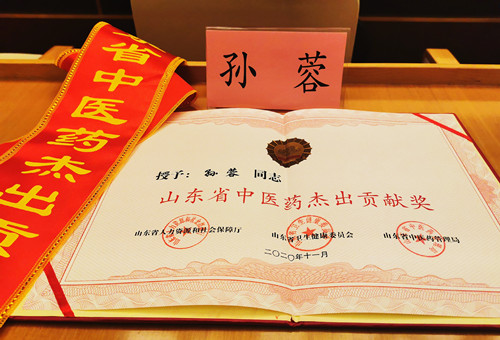 省中医药杰出贡
孙 蓉
授予：孙蓉 同志
山东省中医药杰出贡献奖
山东省人力资源和社会保障厅 山东省卫生健康委员会 山东省中医药管理局
二〇二〇年十一月